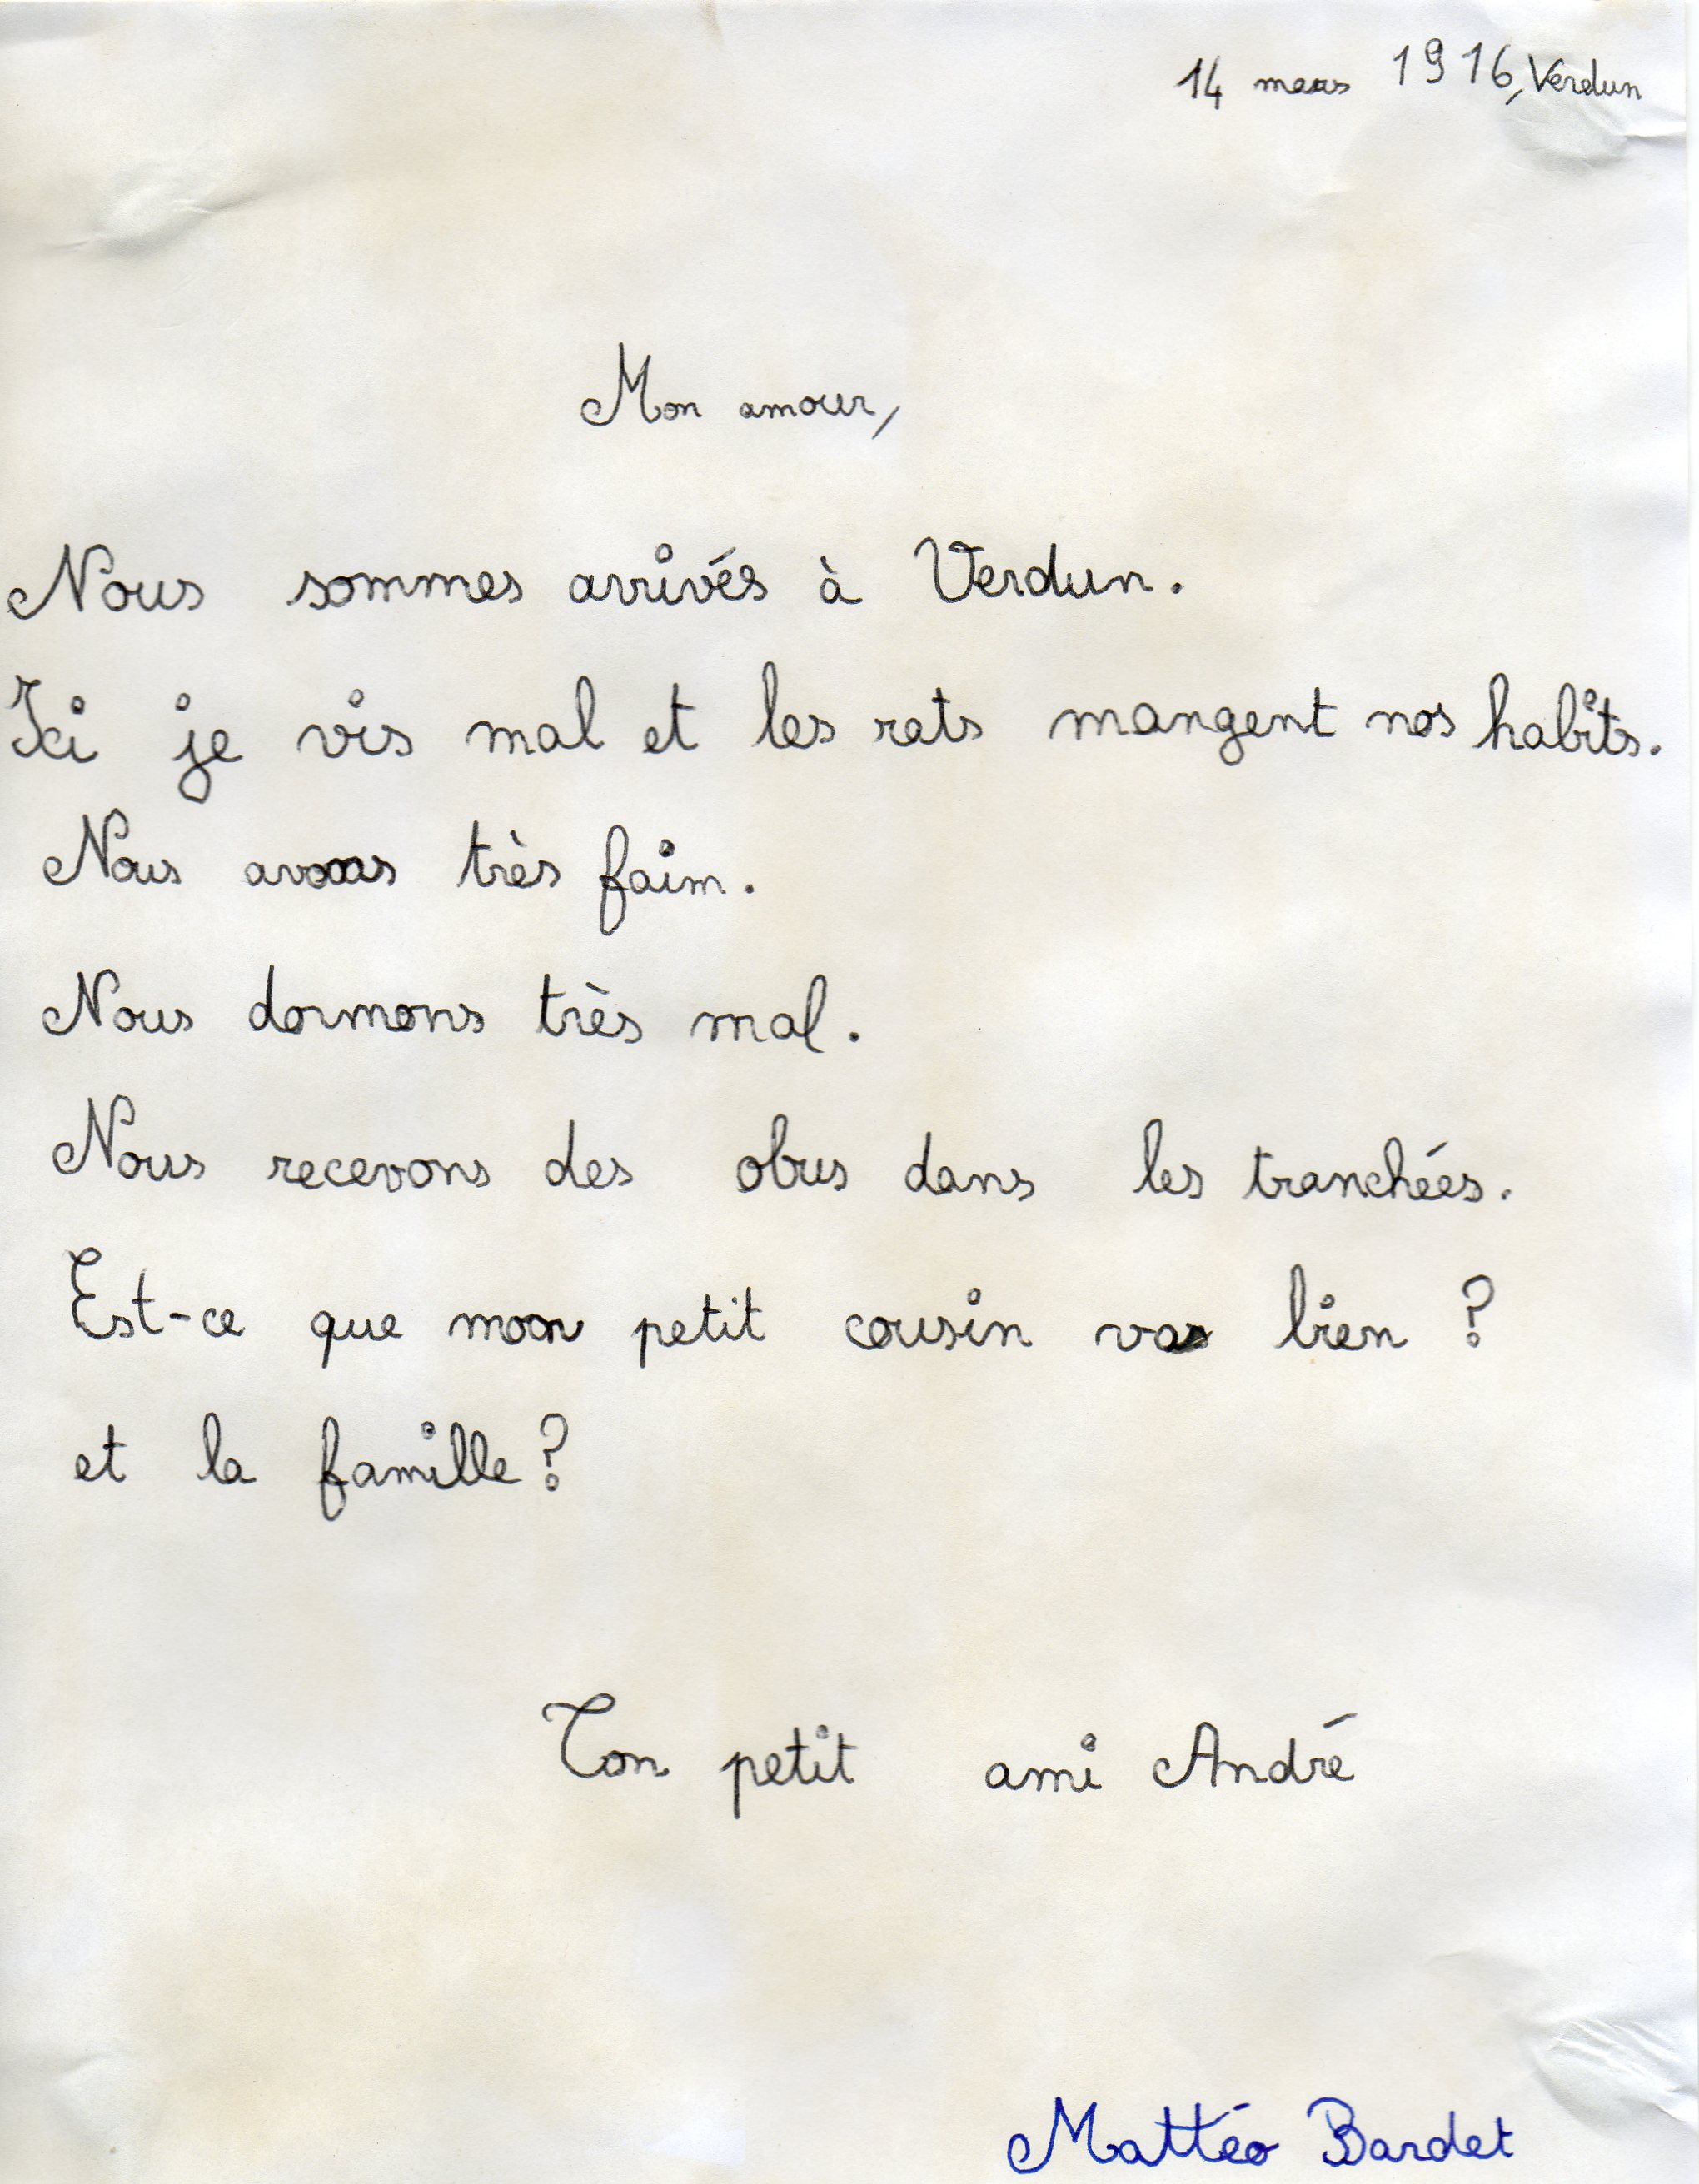 14 mars 1916, Verdun
Mon amour,
Nous sommes arrivés à Verdun.
Ici je vis mal et les rats mangent nos habits.
Nous avons très faim.
Nous dormons très mal.
Nous recevons des obus dans les tranchées.
Est-ce que mon petit cousin va bien ?
et la famille ?
Ton petit ami André
Mattéo Bardet